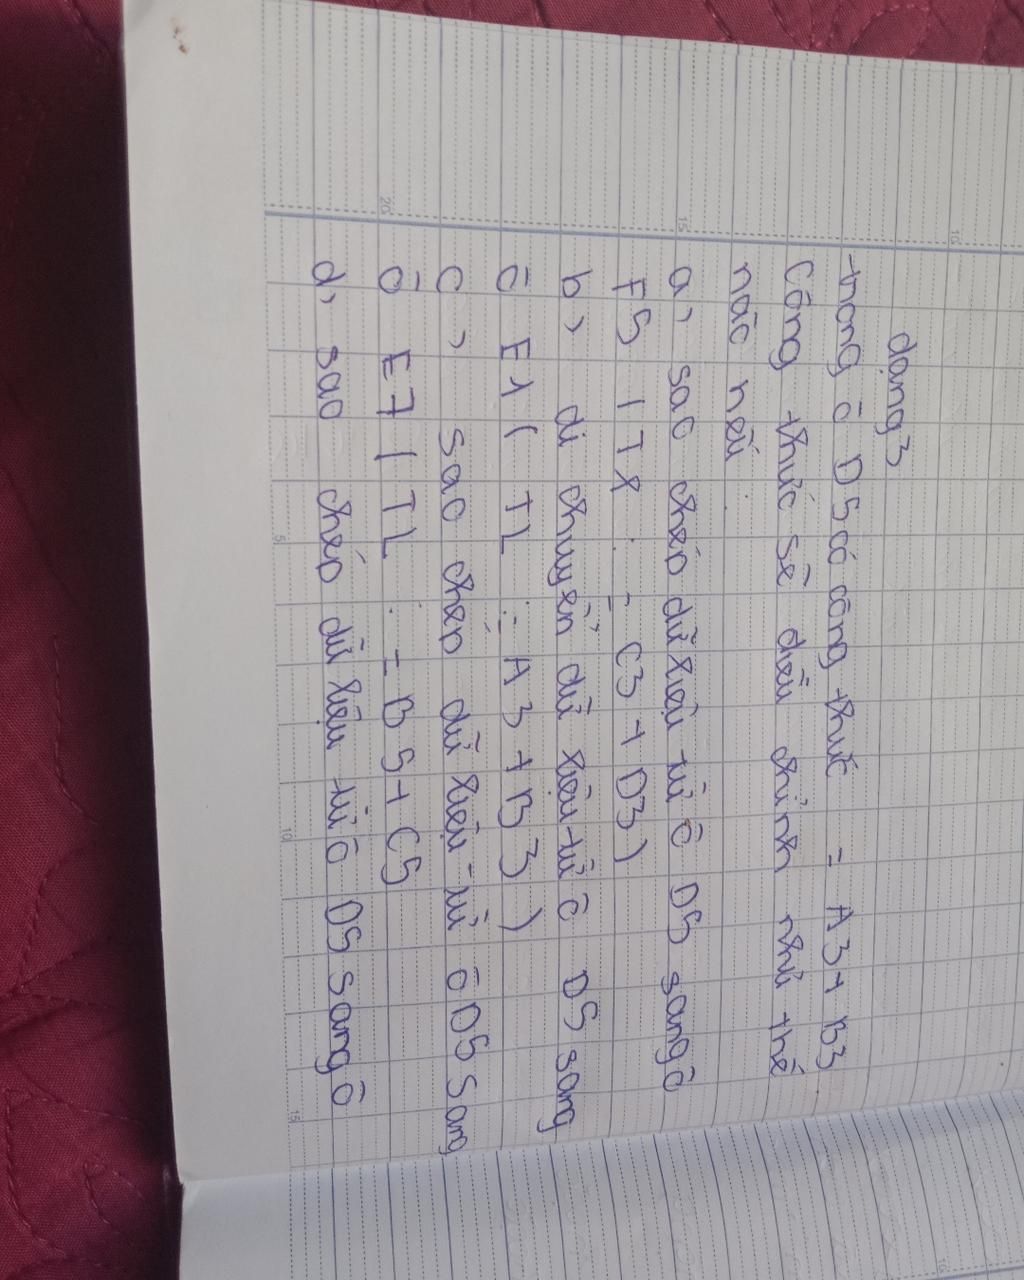 dạng 3
trong ô D5 có công thức = A3 + B3
Công thức sẽ điều chỉnh như thế
nào nếu
a, sao chép dữ liệu từ ô D5 sang ô
F5 (TL : = C3 + D3)
b, di chuyển dữ liệu từ ô D5 sang
ô E1 ( TL := A3 + B3 )
c, sao chép dữ liệu từ ô D5 sang
ô E7 ( TL : = B5 + C5
d, sao chép dữ liệu từ ô D5 sang ô